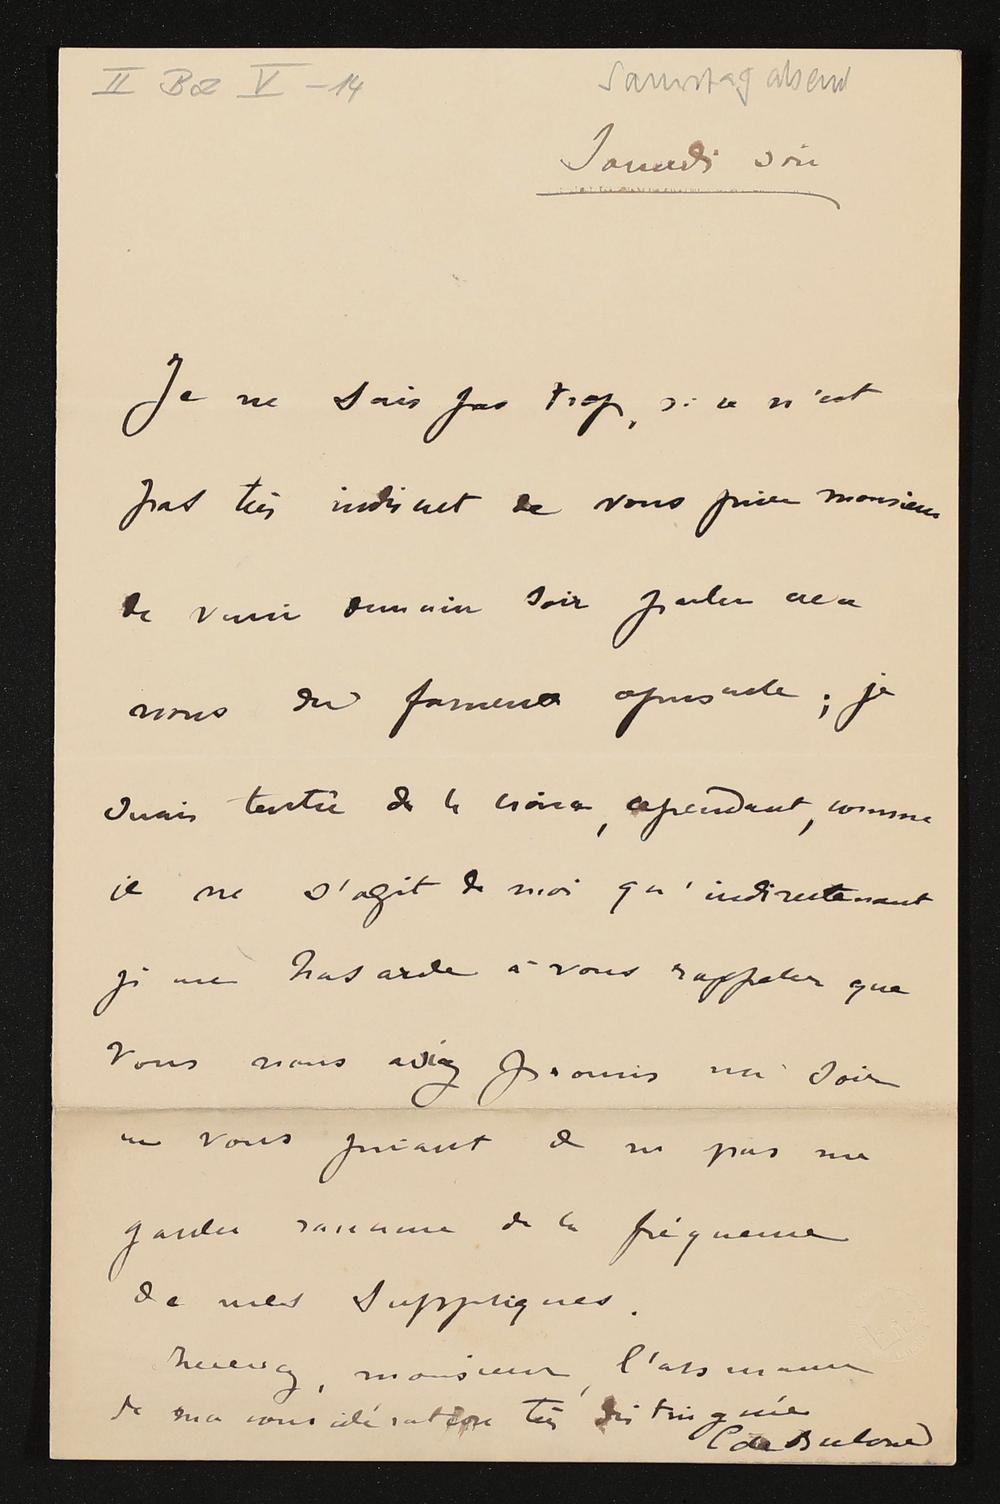 II Bz V - 14
Samstag abend
Samedi soir
Je ne sais pas trop, si ce n'est
pas très indiscret de vous prier monsieur
de venir demain soir parler avec
nous du fameux opuscule ; je
serais tentée de le croire, cependant, comme
il ne s'agit de moi qu'indirectement
je me hasarde à vous rappeler que
vous nous aviez promis un soir
en vous priant de ne pas me
garder rancune de la fréquence
de mes suppliques.
Recevez, monsieur, l'assurance
de ma considération très distinguée
C de